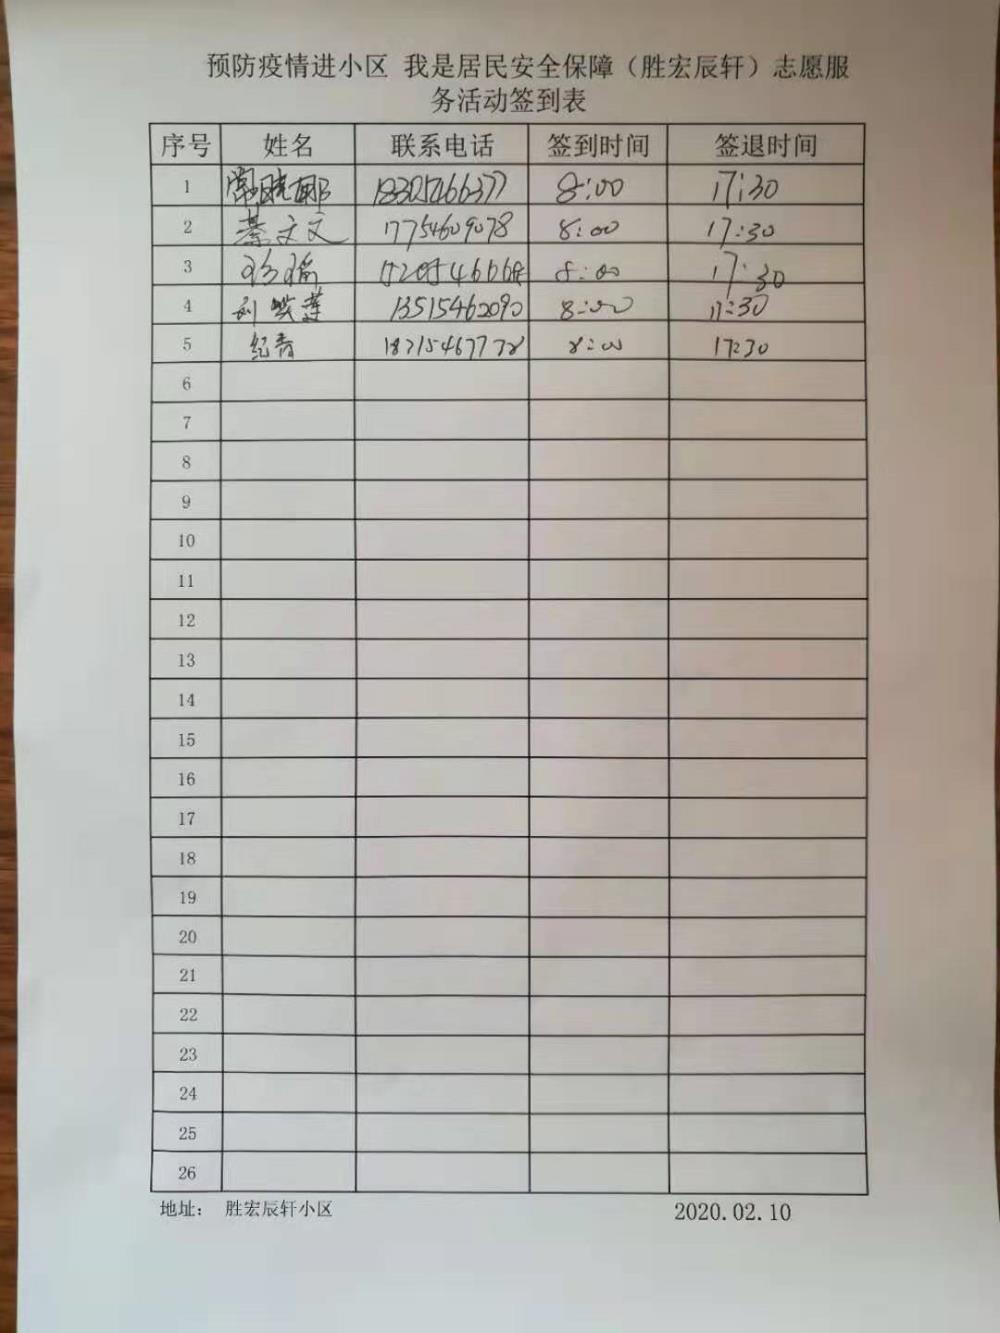 预防疫情进小区 我是居民安全保障（胜宏辰轩）志愿服
务活动签到表
序号 姓名 联系电话 签到时间 签退时间
1 8:00 17:30
2 綦文文 17754609078 8:00 17:30
3 8:00 17:30
4 刘 13515462090 8:00 17:30
5 纪青 8:00 17:30
6
7
8
9
10
11
12
13
14
15
16
17
18
19
20
21
22
23
24
25
26
地址： 胜宏辰轩小区 2020.02.10